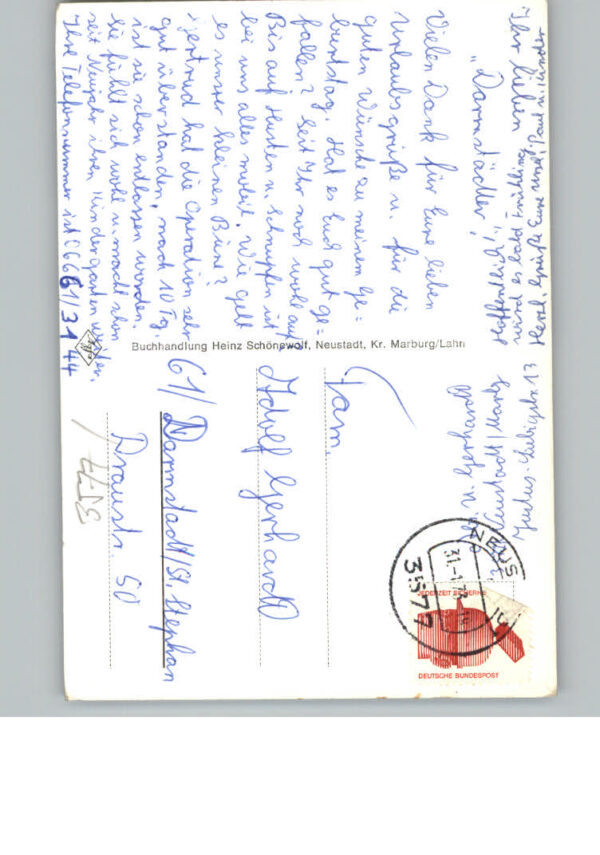 Ihr lieben
"Darmstädter"!
Vielen Dank für Eure lieben
Urlaubsgrüße u. für die
guten Wünsche zu meinem Ge-
burtstag. Hat es Euch gut ge-
fallen? Seit Ihr noch wohlauf?
Bis auf Husten u. Schnupfen ist
bei uns alles soweit. Wie geht
es unser kleinen Büne?
Gertrud hat die Operation sehr
gut überstanden, nach 10 Tg.
ist sie schon entlassen worden.
Sie fühlt sich wohl u. macht schon
seit Neujahr ihren Kindergarten weiter.
Ihre Telefonnummer ist 06661/3144
Hoffentlich
wird es bald Frühling
Herzl. Grüße Eure Paul u. Kinder
Buchhandlung Heinz Schönewolf, Neustadt, Kr. Marburg/Lahn
u. Gerhardt
Neustadt/Marbg
Justus-Liebigstr. 13
Fam.
Adolf Gerhardt
61/ Darmstadt/St. Stephan
Draustr. 50
NEUS
31.-1.73
3577
JEDERZEIT SICHERHEIT
DEUTSCHE BUNDESPOST